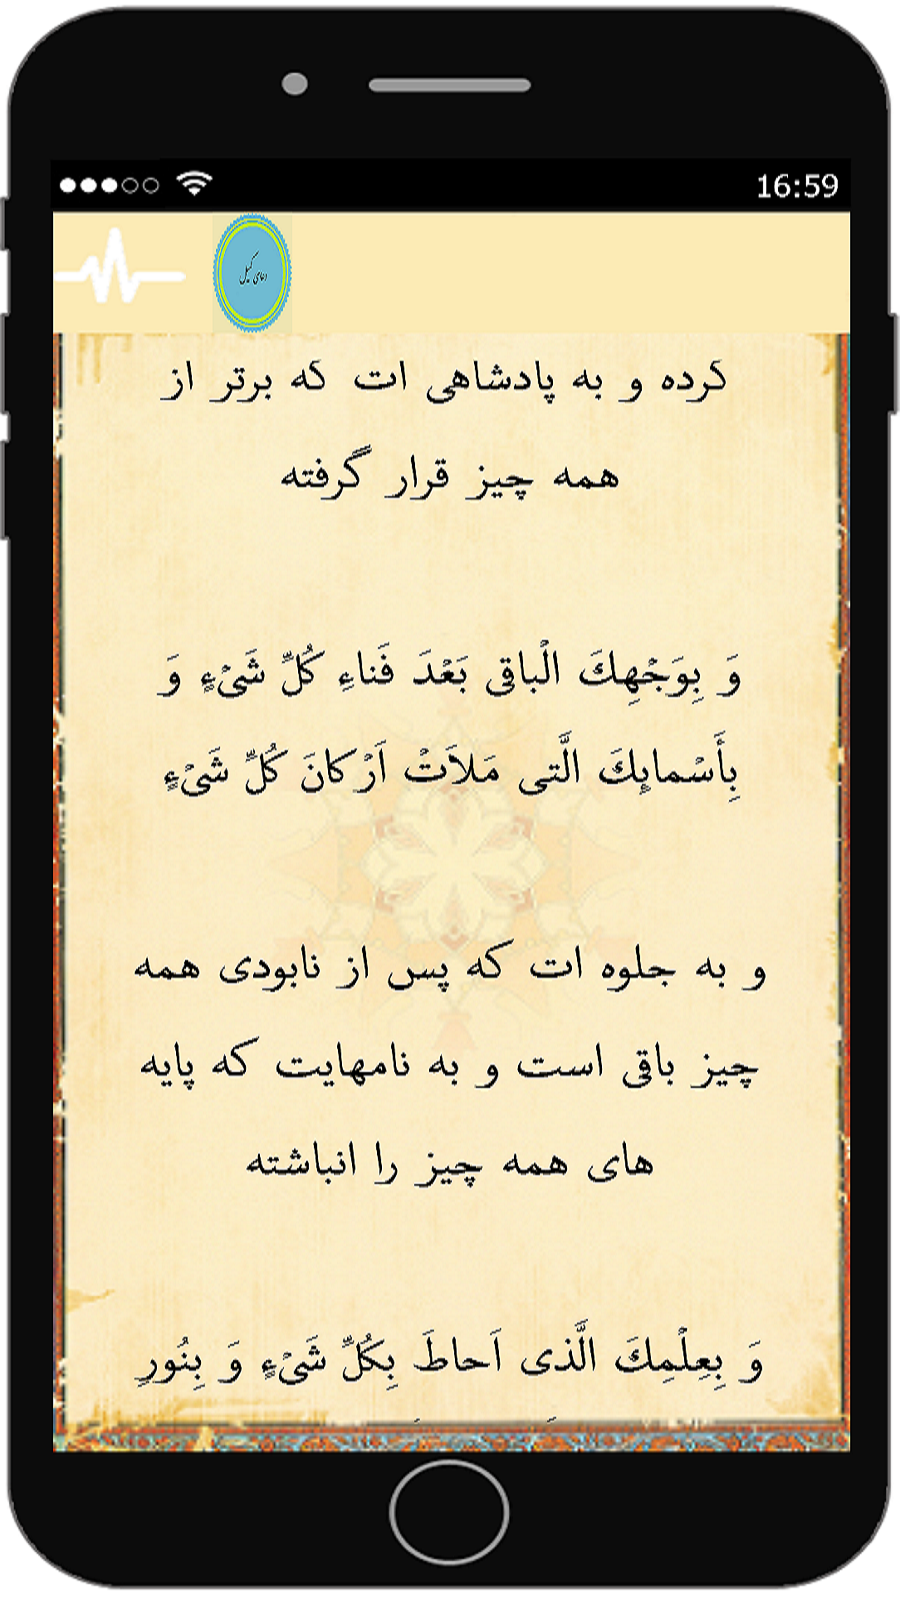 16:59
دعای کمیل
کرده و به پادشاهی ات که برتر از
همه چیز قرار گرفته
وَ بِوَجْهِكَ الْباقی بَعْدَ فَناءِ كُلِّ شَیْءٍ وَ
بِأَسْمائِكَ الَّتی مَلاَتْ اَرْكانَ كُلِّ شَیْءٍ
و به جلوه ات که پس از نابودی همه
چیز باقی است و به نامهایت که پایه
های همه چیز را انباشته
وَ بِعِلْمِكَ الَّذی اَحاطَ بِكُلِّ شَیْءٍ وَ بِنُورِ